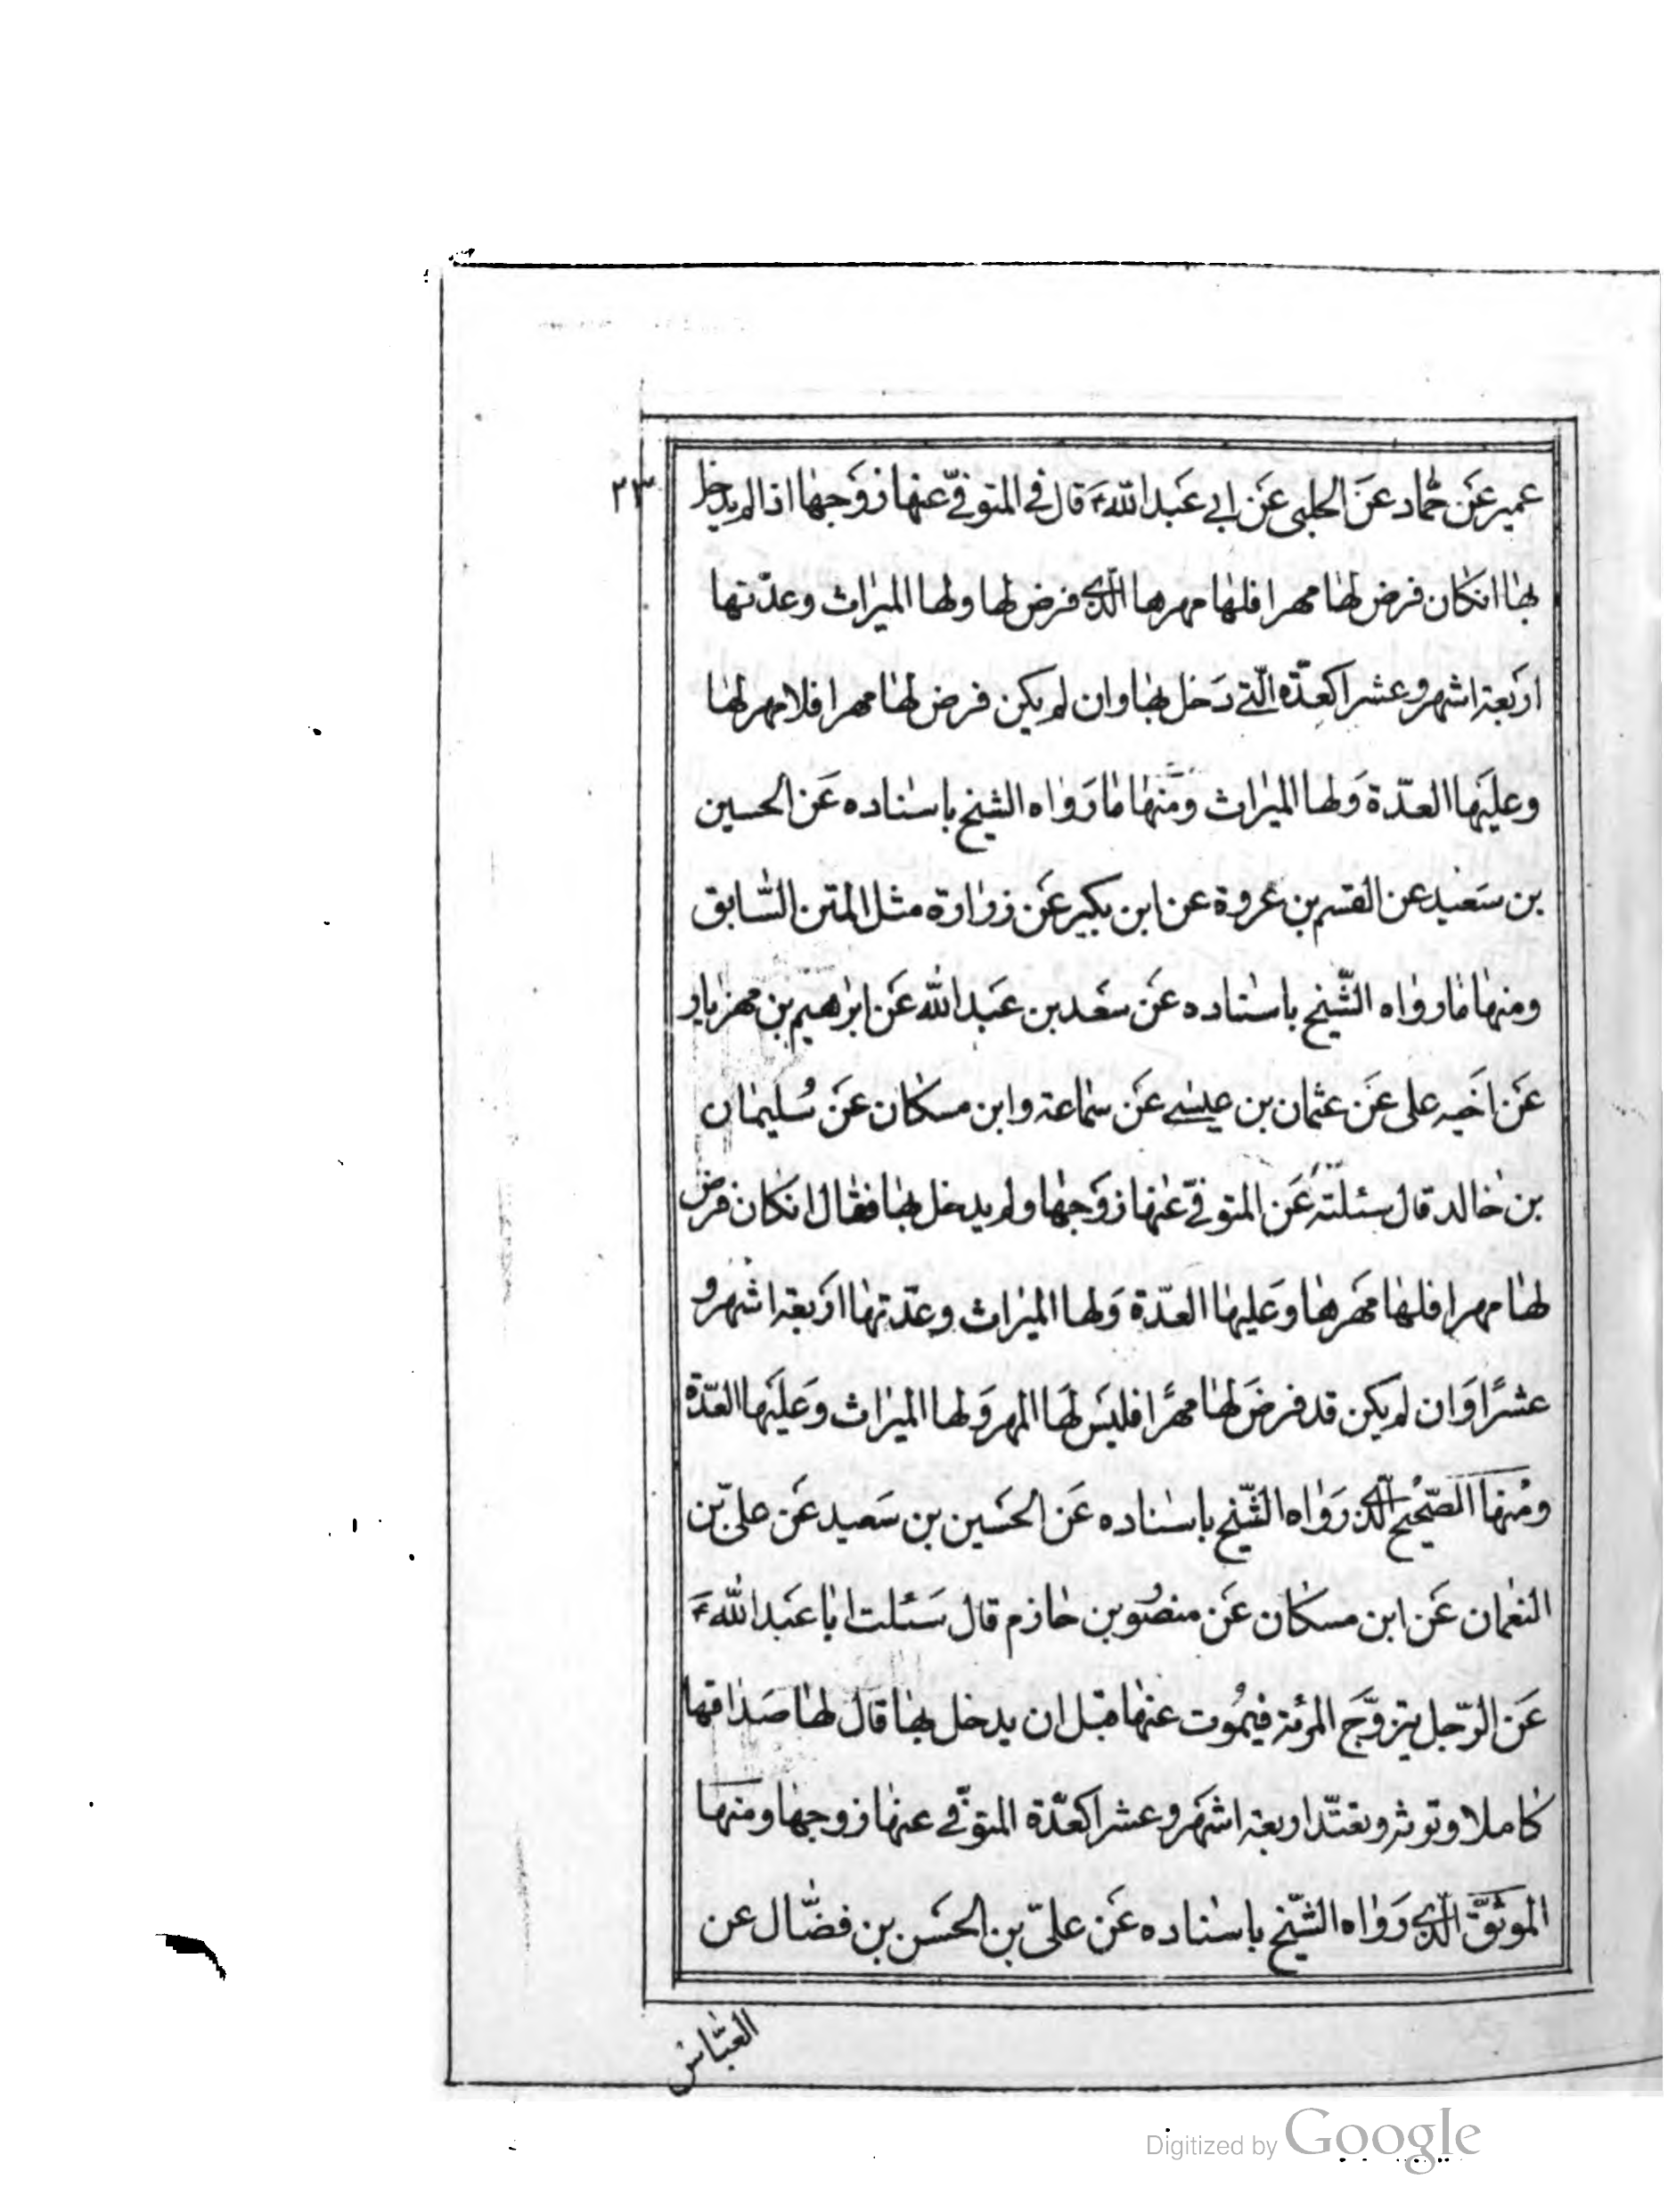 ٢٣
عمير عَن حمّاد عَن الحلبى عَن ابى عَبد اللهؑ قال فى المتوفّى عنها زوَجها اذا لم يدخل
بها انكان فرض لها مهرا فلها مهرها الّذى فرض لها ولها الميراث وعدّتها
اربَعة اشهر وعشرا كعدّة الّتى دَخل بها وان لم يكن فرض لها مهرا فلا مهر لها
وعليَها العدّة وَلها الميراث ومَنها ما رَواه الشيخ باسناده عَن الحسين
بن سَعيد عن القسم بن عروة عن ابن بكير عَن زرارة مثل المتن السّابق
ومنها ما رواه الشّيخ باسناده عَن سَعَد بن عَبد الله عَن ابرهيم بن مهزيار
عَن اخَيه على عَن عثمان بن عيسى عَن سماعة وابن مسكان عَن سُليمان
بن خالد قال سئلته عَن المتوفّى عنها زوَجها ولم يدخل بها فقال انكان فرض
لها مهرا فلها مَهرها وعَليها العدّة وَلها الميراث وعدّتها اربَعة اشهر و
عشرًا وَان لم يكن قد فرضَ لها مهرًا فليَس لَها المهر وَلها الميراث وعَليَها العدّة
ومُنها الصّحيح الّذى رَواه الشّيخ باسناده عَن الحسَين بن سَعيد عَن علىّ بن
النعمان عَن ابن مسكان عَن منصُور بن حازم قال سَئلت ابا عَبد اللهؑ
عَن الرّجل يتزوّجَ المرئة فيمُوت عَنها قبل ان يدخل بها قال لها صَداقها
كاملا وتوثر وتعتدّ اربعة اشهَر وعشرا كعدّة المتوفّى عنها زوجها ومنها
الموثّقَ الّذى رَواه الشّيخ باسناده عَن علىّ بن الحسَن بن فضّال عن
العبّاس
Digitized by Google